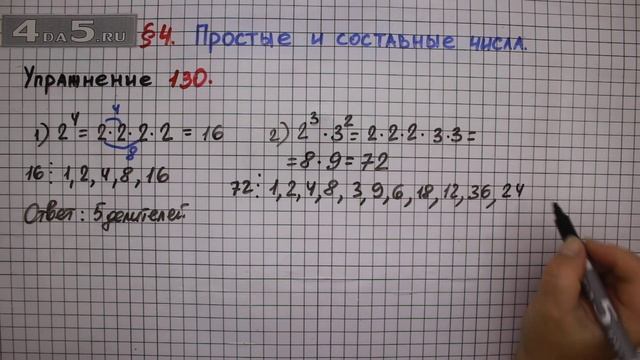 4DA5.RU
§4. Простые и составные числа.
Упражнение 130.
1) 2⁴ = 2·2·2·2 = 16
4
8
16 ⋮ 1, 2, 4, 8, 16
Ответ: 5 делителей
2) 2³·3² = 2·2·2·3·3 =
= 8·9 = 72
72 ⋮ 1, 2, 4, 8, 3, 9, 6, 18, 12, 36, 24